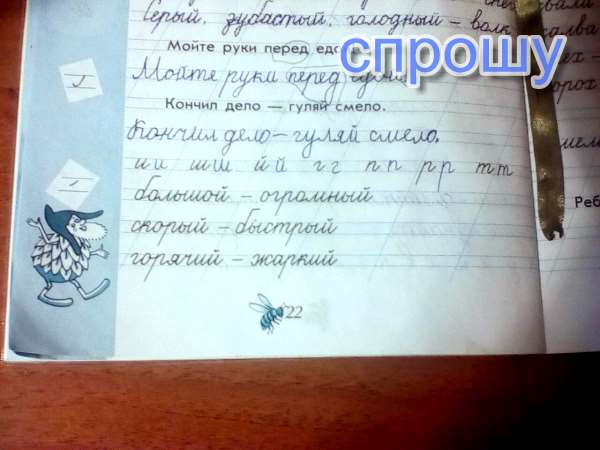 Серый, зубастый, голодный – волк
Мойте руки перед едой.
спрошу
Мойте руки перед едой.
Кончил дело — гуляй смело.
Кончил дело – гуляй смело.
и и ш ш й й г г п п р р т т
большой – огромный
скорый – быстрый
Реб
горячий – жаркий
22